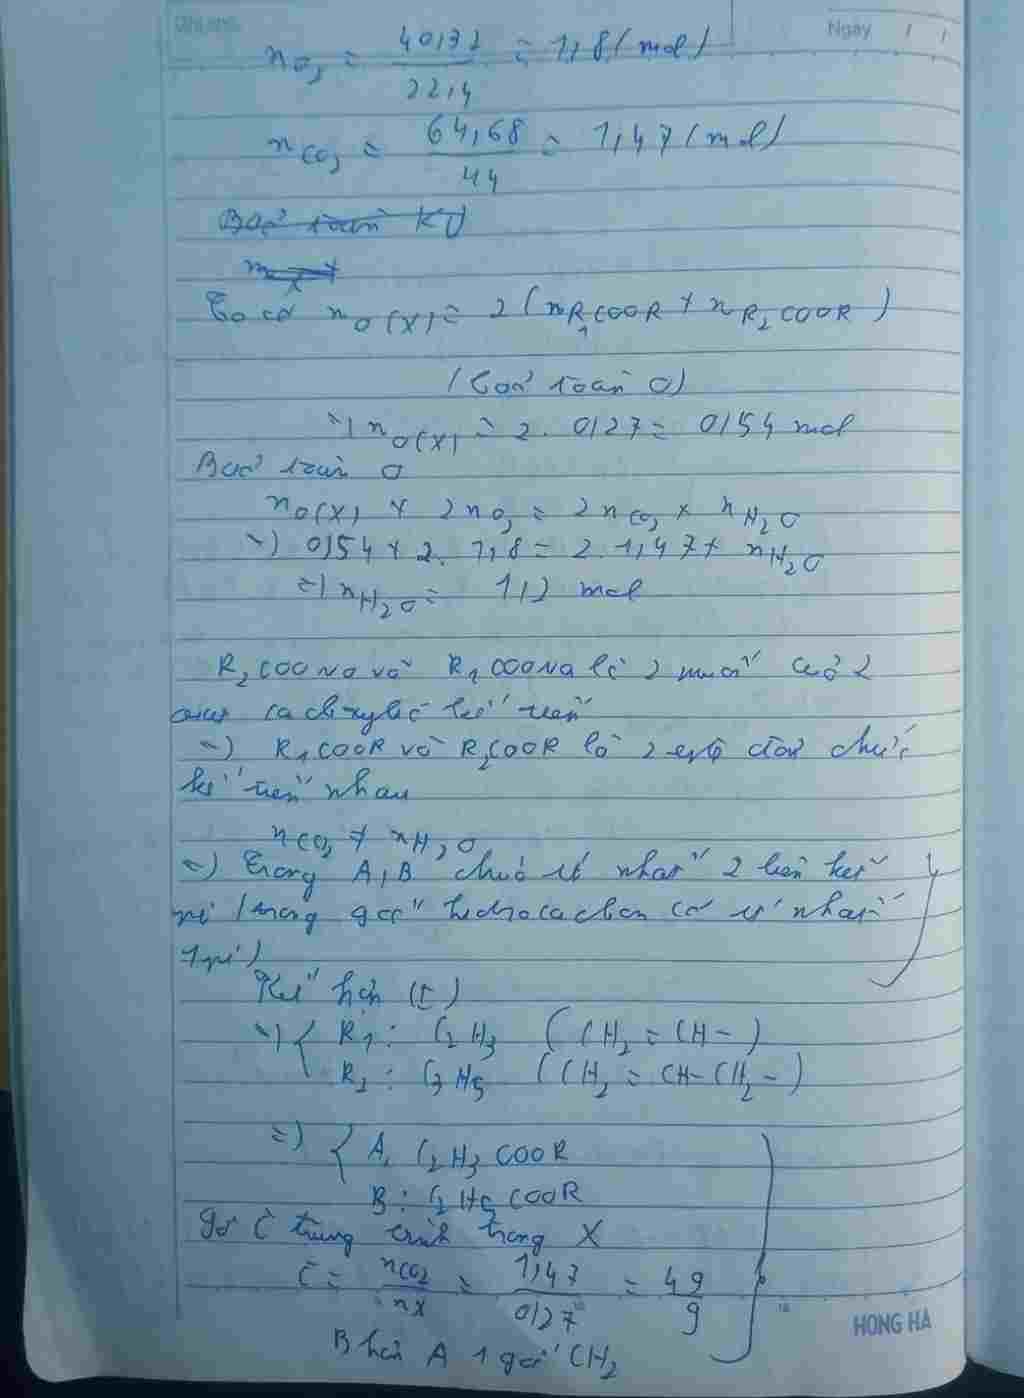 Ngày / /
n O₂ = 40,32 / 22,4 = 1,8 (mol)
n CO₂ = 64,68 / 44 = 1,47 (mol)
Bảo toàn KL
m X +
Ta có n O(X) = 2 (n R₁COOR + n R₂COOR)
(Bảo toàn O)
=> n O(X) = 2. 0,27 = 0,54 mol
Bảo toàn O
n O(X) + 2 n O₂ = 2 n CO₂ + n H₂O
=> 0,54 + 2. 1,8 = 2. 1,47 + n H₂O
=> n H₂O = 1,2 mol
R₂COONa và R₁COONa là 2 muối của 2
cacboxylic kế tiếp
=> R₁COOR và R₂COOR là 2 este đơn chức
kế tiếp nhau
n CO₂ > n H₂O
=> Trong A, B chứa ít nhất 2 liên kết
pi (trong gốc hidrocacbon có ít nhất
1 pi)
Kết hợp (I)
=> { R₁: C₂H₃ (CH₂ = CH - )
R₂: C₃H₅ (CH₂ = CH - CH₂ - )
=> { A: C₂H₃COOR
B: C₂H₅COOR
Số C trung bình trong X
C = nCO₂ / nX = 1,47 / 0,27 = 49 / 9
B hơn A 1 gốc CH₂
HONG HA